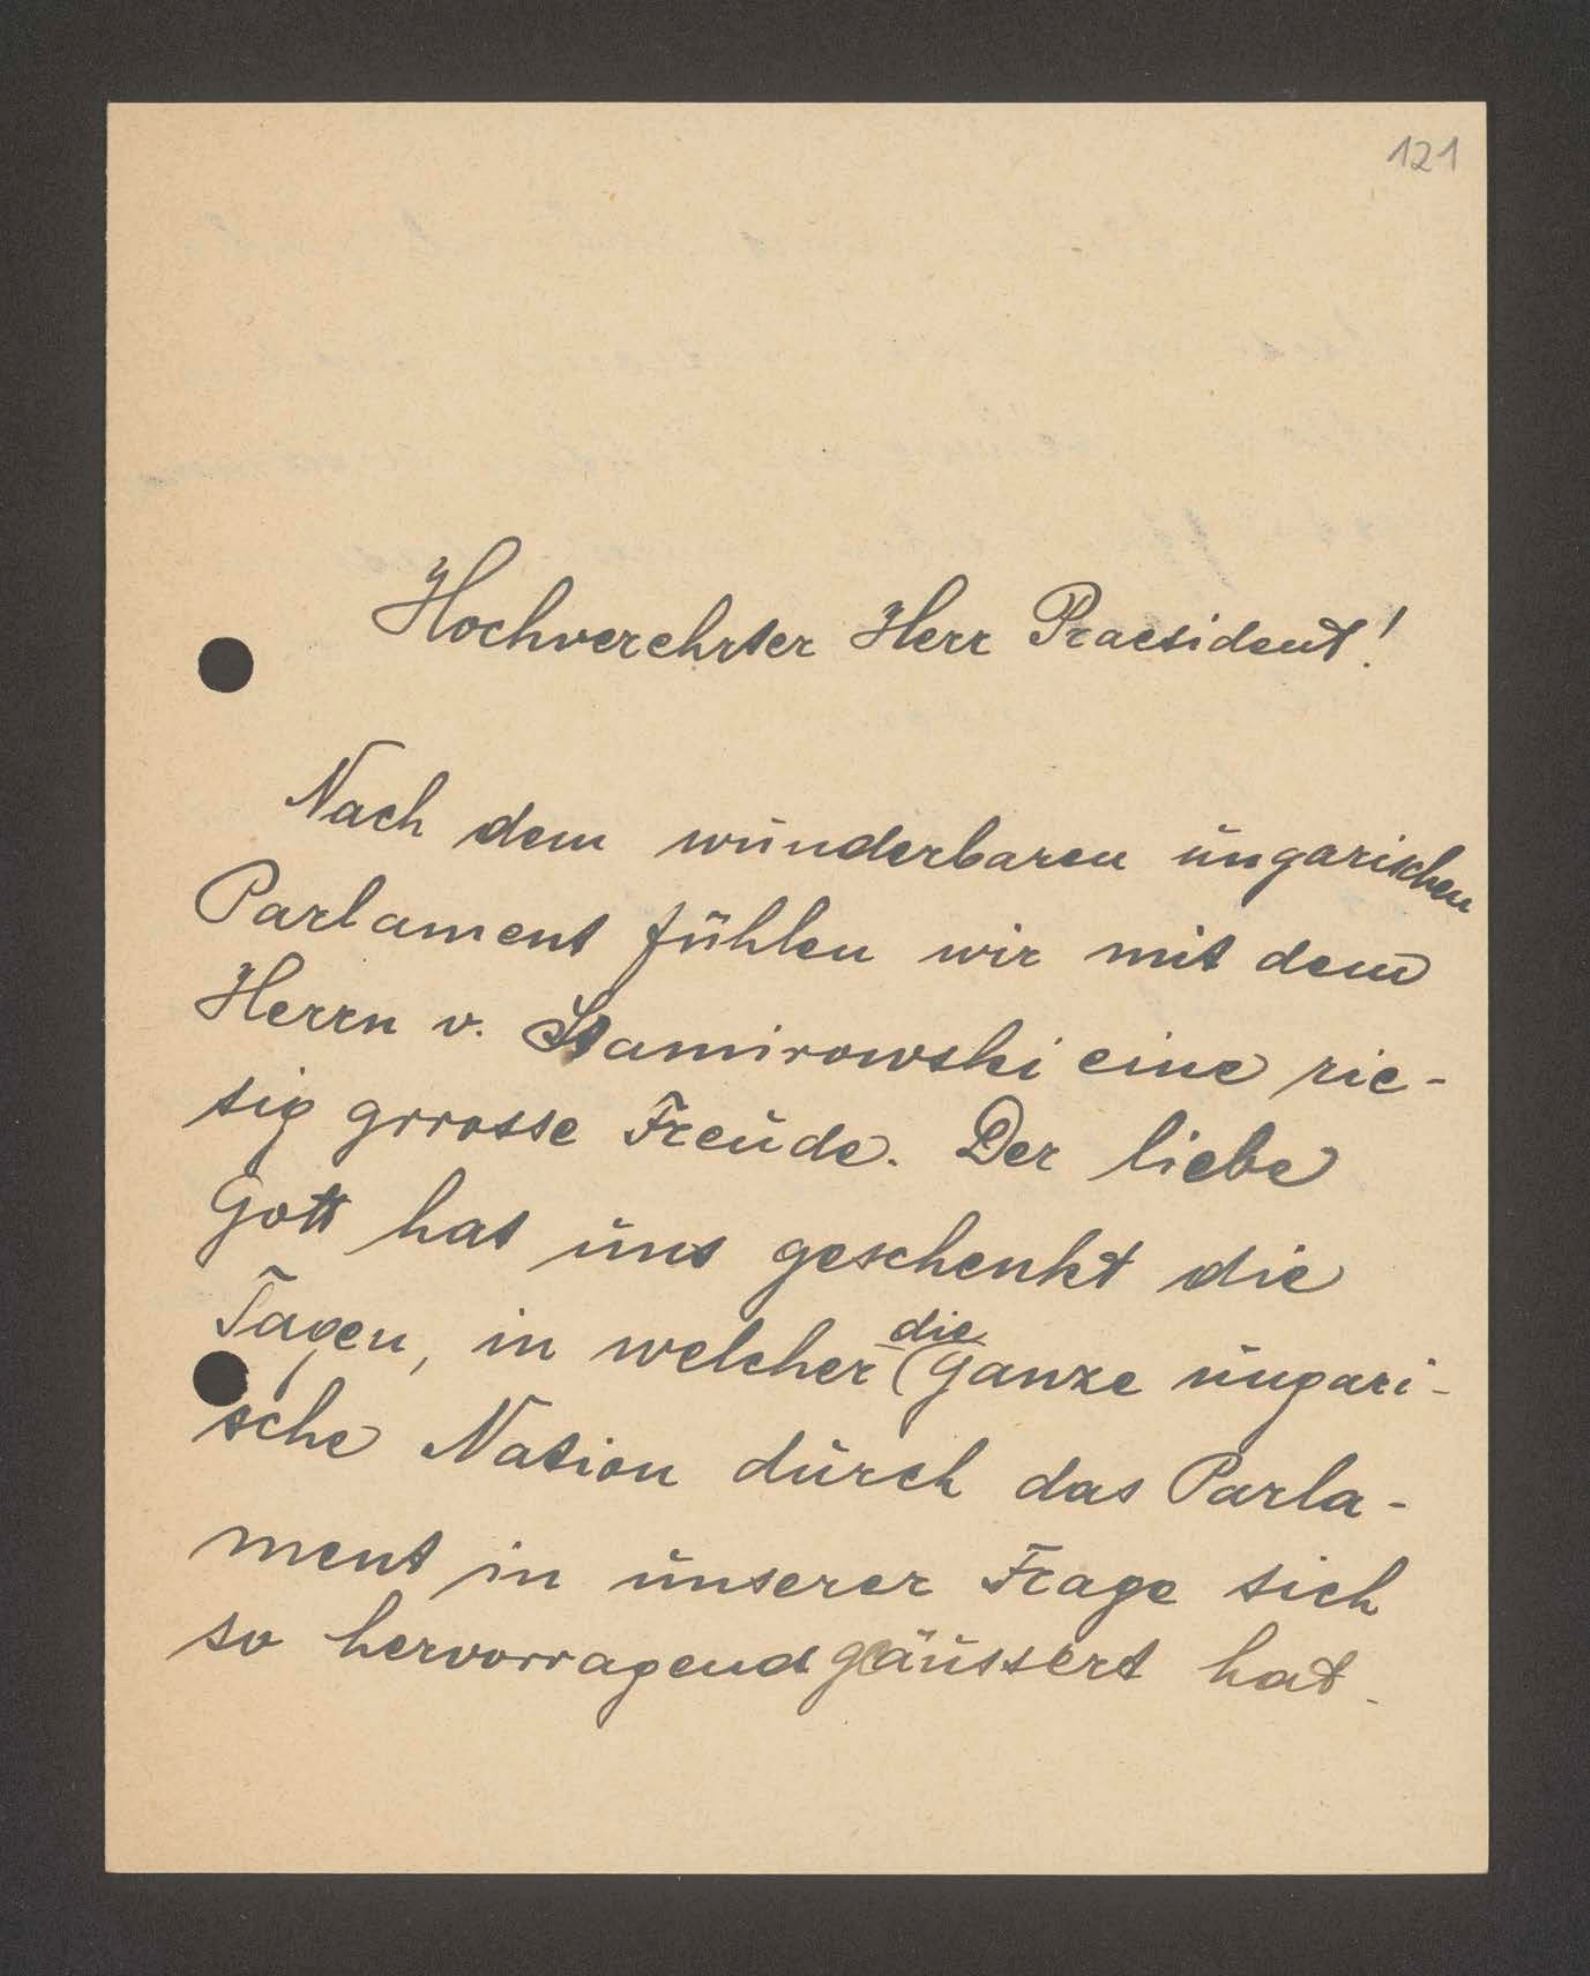 121
Hochverehrter Herr Praesident!
Nach dem wunderbaren ungarischen
Parlament fühlen wir mit dem
Herrn v. Stamirowski eine rie-
sig grrosse Freude. Der liebe
Gott hat uns geschenkt die
Tagen, in welcher die ganze ungari-
sche Nation durch das Parla-
ment in unserer Frage sich
so hervorragend geäussert hat.